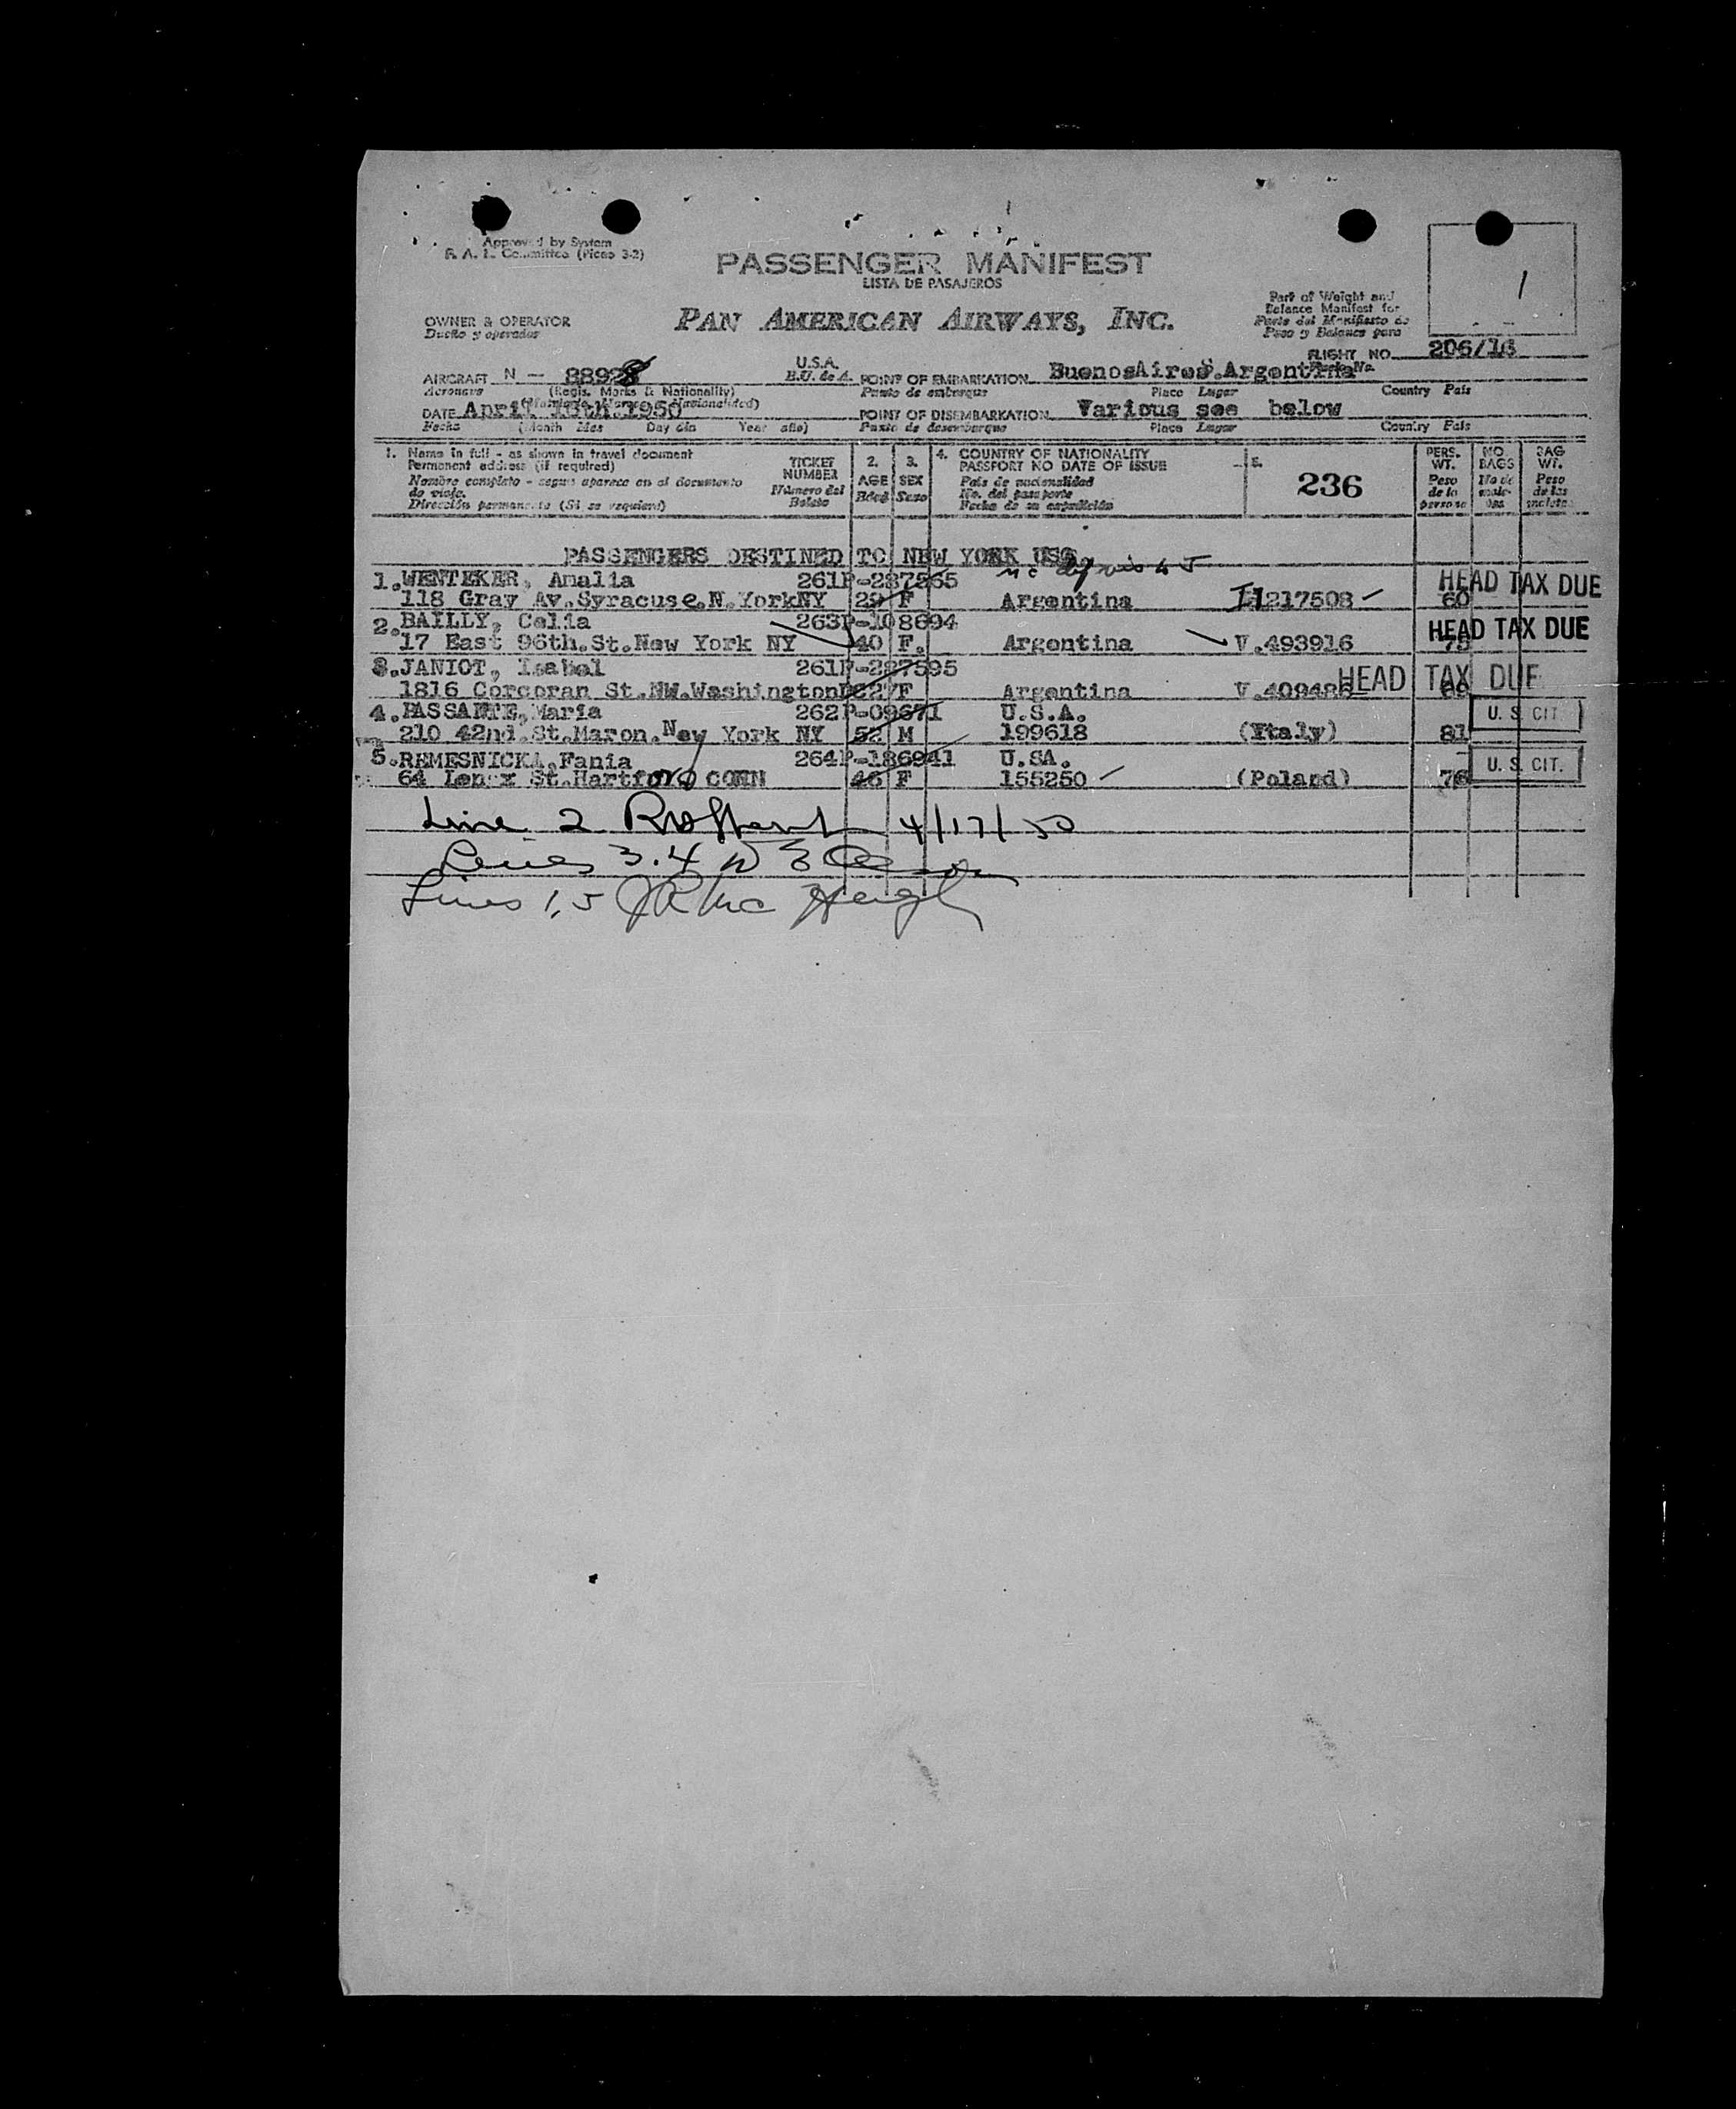 Approved by System
F. A. L. Committee (Picao 3-2)
PASSENGER MANIFEST
LISTA DE PASAJEROS
1
Part of Weight and
Balance Manifest for
Parte del Manifiesto de
Peso y Balance para
OWNER & OPERATOR
Dueño y operador
PAN AMERICAN AIRWAYS, INC.
FLIGHT NO. 206/16
AIRCRAFT N - 88928 U.S.A. POINT OF EMBARKATION BuenosAires.Argentina
Aeronave (Regis. Marks & Nationality) E.U. de A. Punto de embarque Place Lugar Country País
DATE April 16th.1950 POINT OF DISEMBARKATION Various see below
Fecha (Month Mes Day día Year año) Punto de desembarque Place Lugar Country País
1. Name in full - as shown in travel document
Permanent address (if required)
Nombre completo - segun aparece en el documento
de viaje.
Dirección permanente (Si se requiere)
TICKET
NUMBER
Número del
Boleto
2.
AGE
Edad
3.
SEX
Sexo
4. COUNTRY OF NATIONALITY
PASSPORT NO DATE OF ISSUE
País de nacionalidad
No. del pasaporte
Fecha de su expedición
5.
236
PERS.
WT.
Peso
de la
persona
NO.
BAGS
No de
male-
tas
BAG
WT.
Peso
de las
maletas
PASSENGERS DESTINED TO NEW YORK
1. WENTEKER, Amalia 261P-287565 HEAD TAX DUE
118 Gray Av.Syracuse.N.YorkNY 29 F Argentina 217508 60
2. BAILLY, Celia 263P-108694 HEAD TAX DUE
17 East 96th.St.New York NY 40 F. Argentina V.493916 75
3. JANIOT, Isabel 261P-287595 HEAD TAX DUE
1816 Corcoran St.NW.Washington 27 F Argentina
4. PASSANTE,Maria 262P-09671 U.S.A. U. S. CIT.
210 42nd.St.Maron.New York NY 52 M 199618 (Italy) 81
5. REMESNICKA,Fania 264P-186941 U.SA. U. S. CIT.
64 Lenox St.Hartford CONN 46 F 155250 (Poland) 76
Line 2 4/17/50
Lines 3.4
Lines 1,5